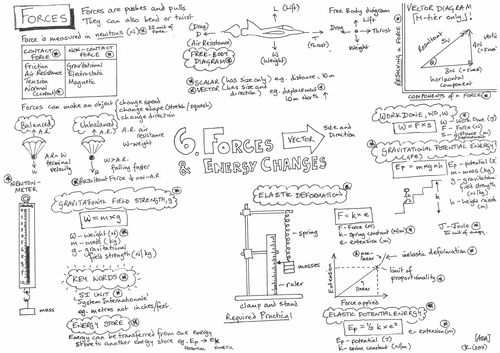 FORCES
Forces are pushes and pulls
They can also bend or twist
Force is measured in newtons (N)
SI unit of force
CONTACT FORCE
Friction
Air Resistance
Tension
Normal (contact)
NON-CONTACT FORCE
Gravitational
Electrostatic
Magnetic
Forces can make an object
change speed
change shape (stretch/squash)
change direction
L (Lift)
(Drag)
D
(Air Resistance)
T
(Thrust)
W
(Weight)
FREE-BODY DIAGRAM
Free Body diagram
Lift
Drag
Thrust
Weight
SCALAR (has size only) eg. distance, 10m
VECTOR (has size and direction) eg. displacement, 10m North
VECTOR DIAGRAM
(H-tier only!)
RESOLVING A FORCE
Resultant
5N
3N
8N
horizontal component
COMPONENTS of a FORCE
Balanced
A.R.
W
A.R = W
terminal velocity
Unbalanced
A.R.
W
W > A.R
falling faster
A.R. air resistance
W - weight
Resultant Force
6. FORCES & ENERGY CHANGES
VECTOR
Size and Direction
WORK DONE, WD, W
W = F x s
W - Work Done (J)
F - Force (N)
s - distance (m)
GRAVITATIONAL POTENTIAL ENERGY (PE)
Ep = m x g x h
Ep - potential (J)
m - mass (kg)
g - gravitational field strength (N/kg)
h - height raised (m)
J - Joule
NEWTON-METER
mass
GRAVITATIONAL FIELD STRENGTH, g
W = m x g
W - weight (N)
m - mass (kg)
g - gravitational field strength (N/kg)
KEY WORDS
SI UNIT
'Système Internationale'
eg. metres not inches/feet
ENERGY STORE
Energy can be transferred from one energy store to another energy store eg. Ep → Ek
POTENTIAL KINETIC
ELASTIC DEFORMATION
spring
masses
ruler
clamp and stand
Required Practical
F = k x e
F - Force (N)
k - spring constant (N/m)
e - extension (m)
Extension
non-linear
linear
Force applied
inelastic deformation
limit of proportionality
ELASTIC POTENTIAL ENERGY
Ep = ½ k x e²
Ep - potential (J)
k - spring constant (N/m)
e - extension (m)
[AQA]